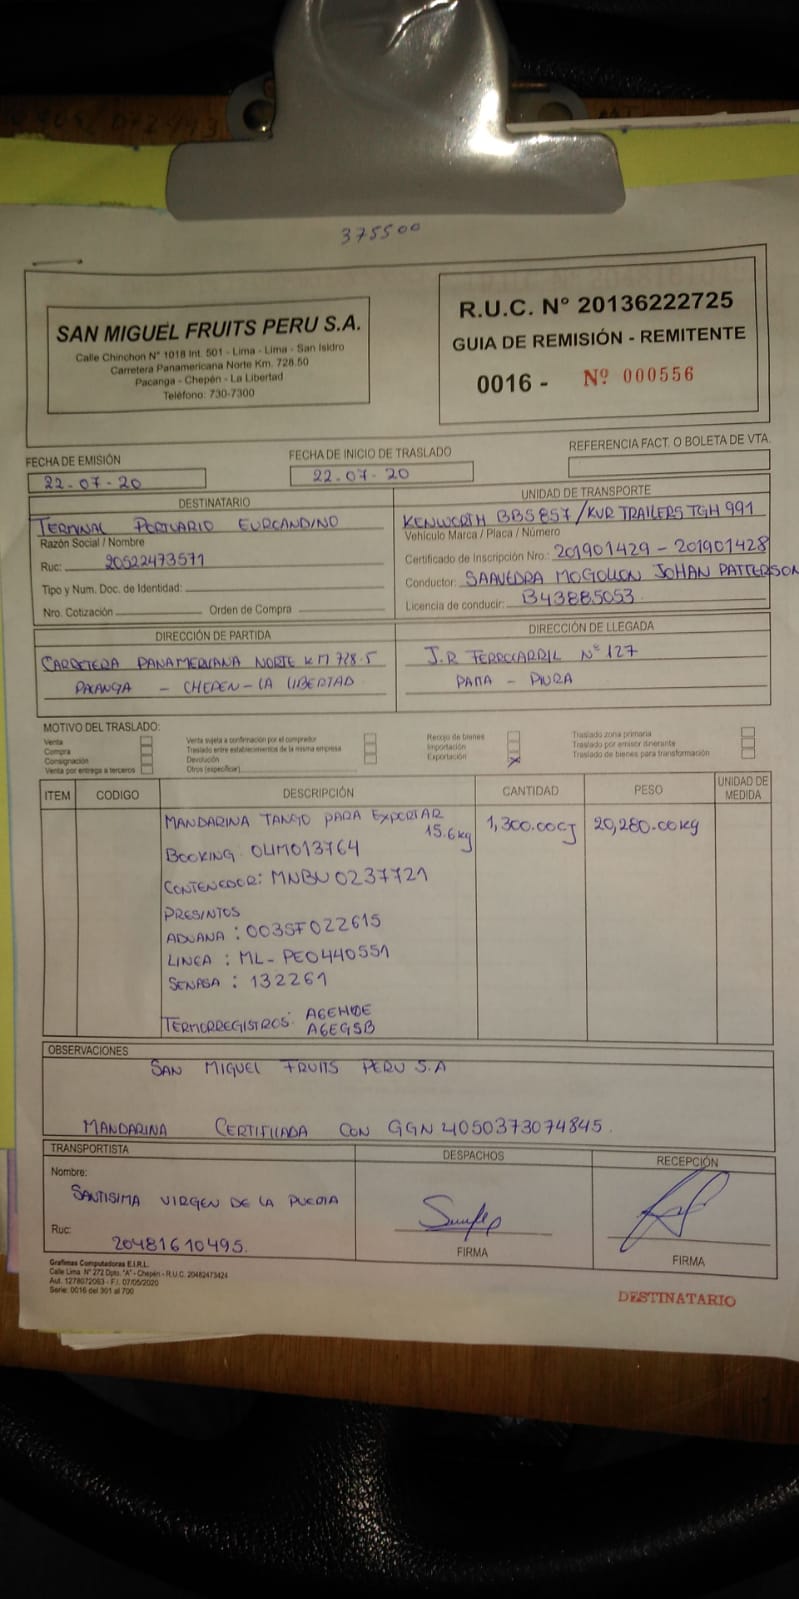 375500
SAN MIGUEL FRUITS PERU S.A.
Calle Chinchon N° 1018 Int. 501 - Lima - Lima - San Isidro
Carretera Panamericana Norte Km. 728.50
Pacanga - Chepén - La Libertad
Teléfono: 730-7300
R.U.C. N° 20136222725
GUIA DE REMISIÓN - REMITENTE
0016 - Nº 000556
FECHA DE EMISIÓN
22-07-20
FECHA DE INICIO DE TRASLADO
22-07-20
REFERENCIA FACT. O BOLETA DE VTA.
DESTINATARIO
TERMINAL PORTUARIO EUROANDINO
Razón Social / Nombre
Ruc: 20522473571
Tipo y Num. Doc. de Identidad:
Nro. Cotización Orden de Compra
UNIDAD DE TRANSPORTE
KENWORTH BBS857/KUR TRAILERS TGH 991
Vehículo Marca / Placa / Número
Certificado de Inscripción Nro.: 201901429 - 201901428
Conductor: SAAVEDRA MOGOLLON JOHAN PATTERSON
Licencia de conducir: B43885053
DIRECCIÓN DE PARTIDA
CARRETERA PANAMERICANA NORTE KM 728.5
PACANGA - CHEPEN - LA LIBERTAD
DIRECCIÓN DE LLEGADA
J.R FERROCARRIL N° 127
PAITA - PIURA
MOTIVO DEL TRASLADO:
Venta
Compra
Consignación
Venta por entrega a terceros
Venta sujeta a confirmación por el comprador
Traslado entre establecimientos de la misma empresa
Devolución
Otros (especificar)
Recojo de bienes
Importación
Exportación X
Traslado zona primaria
Traslado por emisor itinerante
Traslado de bienes para transformación
ITEM CODIGO DESCRIPCIÓN CANTIDAD PESO UNIDAD DE MEDIDA
MANDARINA TANGO PARA EXPORTAR 1,300.00CJ 20,280.00kg
15.6kg
BOOKING: OLIM013764
CONTENEDOR: MNBU 0237721
PRESINTOS
ADUANA : 003SF022615
LINEA : ML-PE0440551
SENASA : 132261
TERMORREGISTROS:
A6EGSB
OBSERVACIONES
SAN MIGUEL FRUITS PERU S.A
MANDARINA CERTIFICADA CON GGN 4050373074845.
TRANSPORTISTA
Nombre:
SANTISIMA VIRGEN DE LA PUERTA
Ruc:
20481610495.
DESPACHOS
FIRMA
RECEPCIÓN
FIRMA
Grafimas Computadoras E.I.R.L.
Calle Lima N° 272 Dpto. "A" - Chepén - R.U.C. 20482473424
Aut. 1278072063 - F.I. 07/05/2020
Serie: 0016 del 301 al 700
DESTINATARIO